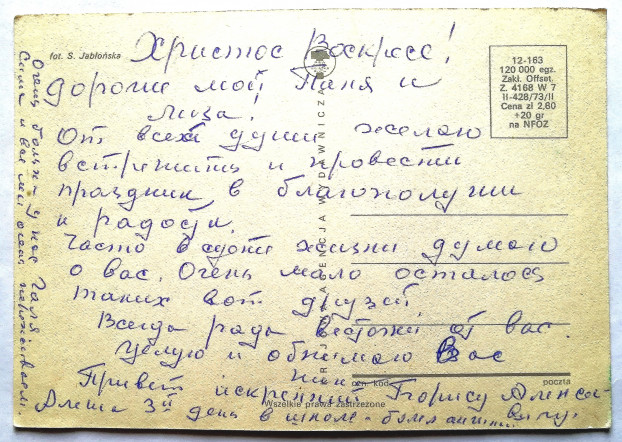 fot. S. Jabłońska
Христос Воскресе!
12-163
120 000 egz.
Zakł. Offset.
Z. 4168 W 7
II-428/73/II
Cena zł 2,60
+20 gr
na NFOZ
Дорогие мои Таня и
Лиза!
От всей души желаю
встретить и провести
праздник в благополучии
и радости.
Часто в суете жизни думаю
о вас. Очень мало осталось
таких вот друзей
Всегда рада весточке от вас.
Целую и обнимаю Вас
Привет искренний Борису Алексе-
евичу.
Алеша 3й день в школе - болел ангиной
Очень больна у нас Галя
Сами и все мы очень переживаем.
KRAJOWA AGENCJA WYDAWNICZA
kod
poczta
Wszelkie prawa zastrzeżone